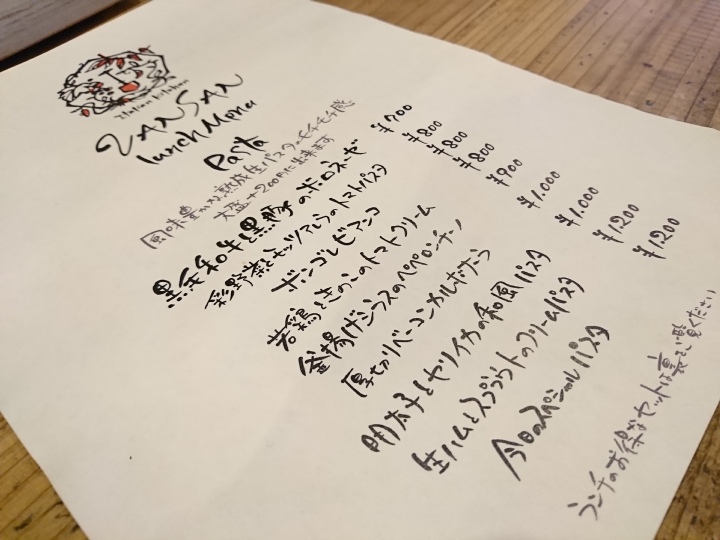 Italian kitchen
VANSAN
lunch Menu
Pasta
風味豊かな熟成生パスタのモチモチ感
大盛+200円に出来ます
黒毛和牛と黒豚のボロネーゼ ¥700
彩野菜とモッツァレラのトマトパスタ ¥800
ボンゴレビアンコ ¥800
若鶏ときのこのトマトクリーム ¥800
釜揚げシラスのペペロンチーノ ¥900
厚切りベーコンカルボナーラ ¥1.000
明太子とヤリイカの和風パスタ ¥1.000
生ハムとスプラウトのクリームパスタ ¥1200
今日のスペシャルパスタ ¥1200
ランチのお得なセットは裏をご覧ください